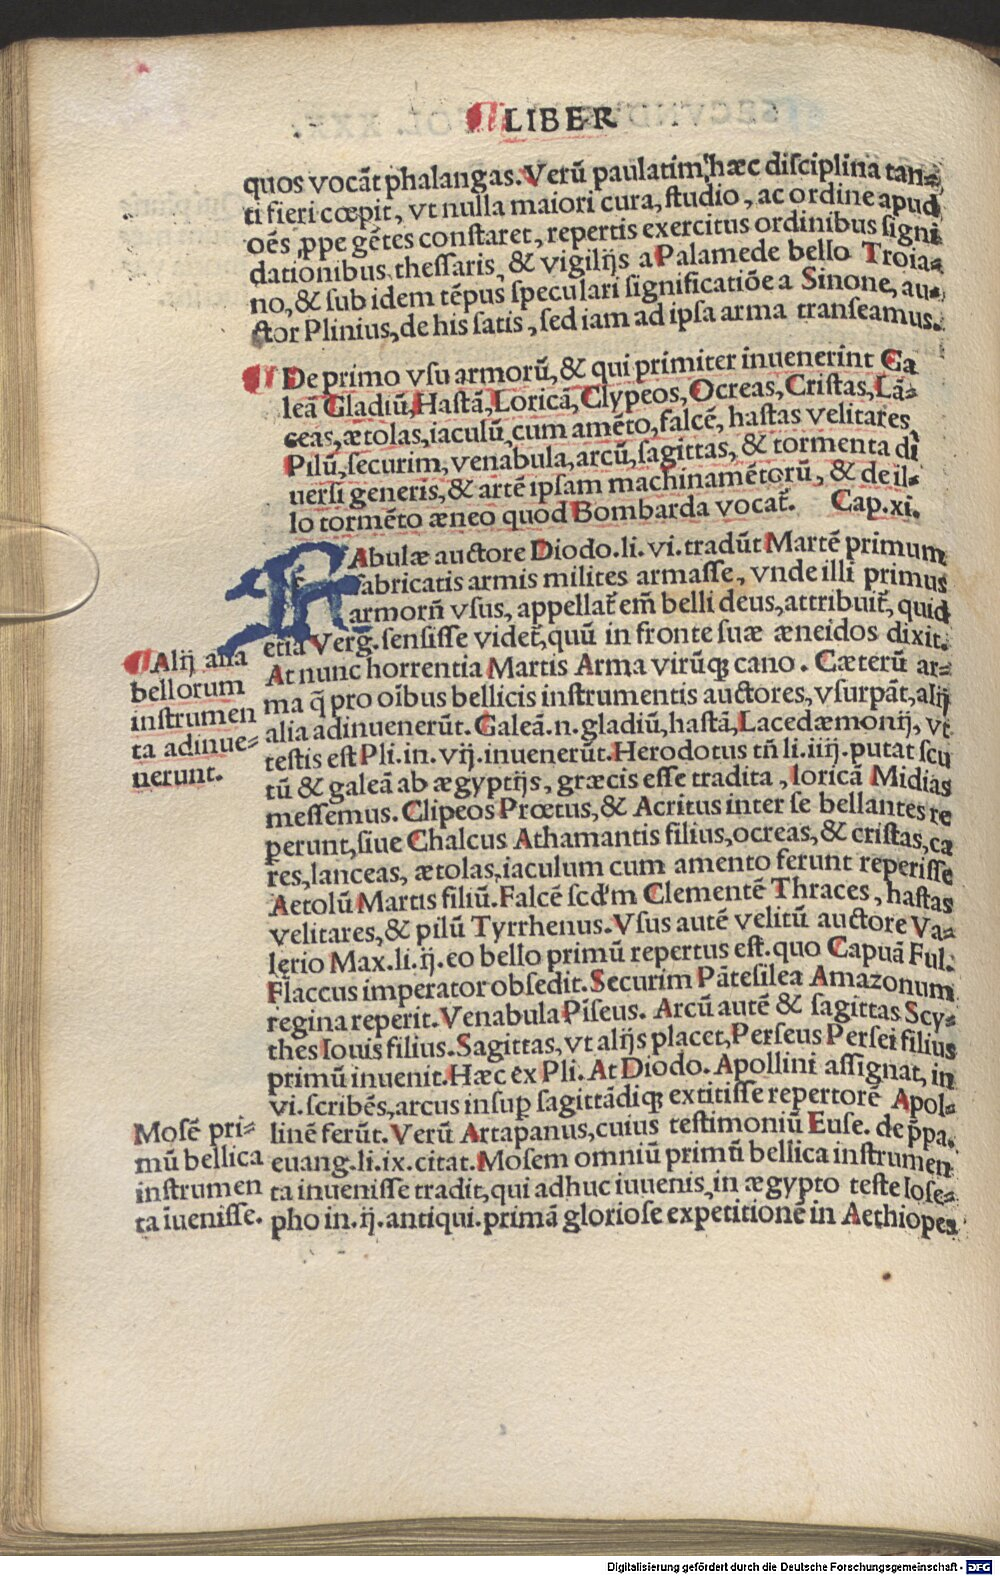 LIBER
quos vocãt phalangas. Verũ paulatim hæc disciplina tan-
ti fieri cœpit, vt nulla maiori cura, studio, ac ordine apud
oẽs ꝓpe gẽtes constaret, repertis exercitus ordinibus signi
dationibus thessaris, & vigilijs a Palamede bello Troia-
no, & sub idem tẽpus speculari significatiõe a Sinone, au-
ctor Plinius, de his satis, sed iam ad ipsa arma transeamus.
¶ De primo vsu armorũ, & qui primiter inuenerint Ga
leã Gladiũ, Hastã, Loricã, Clypeos, Ocreas, Cristas, Lã-
ceas, ætolas, iaculũ cum amẽto, falcẽ, hastas velitares,
Pilũ, securim, venabula, arcũ, sagittas, & tormenta di
uersi generis, & artẽ ipsam machinamẽtorũ, & de il-
lo tormẽto æneo quod Bombarda vocat̃. Cap.xi.
FAbulæ auctore Diodo.li.vi.tradũt Martẽ primum
fabricatis armis milites armasse, vnde illi primus
armorũ vsus, appellat̃ em̃ belli deus, attribuit̃, quid
etiã Verg̃. sensisse videt̃, quũ in fronte suæ æneidos dixit.
At nunc horrentia Martis Arma virũqꝫ cano. Cæterũ ar-
ma q̃ pro oĩbus bellicis instrumentis auctores, vsurpãt, alij
alia adinuenerũt. Galeã.n.gladiũ, hastã, Lacedæmonij, vt
testis est Pli.in.vij.inuenerũt. Herodotus tñ li.iiij.putat scu
tũ & galeã ab ægyptijs, græcis esse tradita, loricã Midias
messemus. Clipeos Prœtus, & Acritus inter se bellantes re
ꝑerunt, siue Chalcus Athamantis filius, ocreas, & cristas, ca
res, lanceas, ætolas, iaculum cum amento ferunt reperisse
Aetolũ Martis filiũ. Falcẽ scd'm Clementẽ Thraces, hastas
velitares, & pilũ Tyrrhenus. Vsus autẽ velitũ auctore Va-
lerio Max.li.ij.eo bello primũ repertus est. quo Capuã Ful.
Flaccus imperator obsedit. Securim Pãtesilea Amazonum
regina reperit. Venabula Piseus. Arcũ autẽ & sagittas Scy-
thes Iouis filius. Sagittas, vt alijs placet, Perseus Persei filius
primũ inuenit. Hæc ex Pli. At Diodo. Apollini assignat, in
vi.scribẽs, arcus insuꝑ sagittãdiqꝫ extitisse repertorẽ Apol-
linẽ ferũt. Verũ Artapanus, cuius testimoniũ Euse. de p̃pa.
euang.li.ix.citat. Mosem omniũ primũ bellica instrumen
ta inuenisse tradit, qui adhuc iuuenis, in ægypto teste Iose-
pho in.ij.antiqui.primã gloriose expetitionẽ in Aethiopes
¶ Alij alia
bellorum
instrumen
ta adinue-
nerunt.
Mosẽ pri-
mũ bellica
instrumen
ta ĩuenisse.
Digitalisierung gefördert durch die Deutsche Forschungsgemeinschaft - DFG